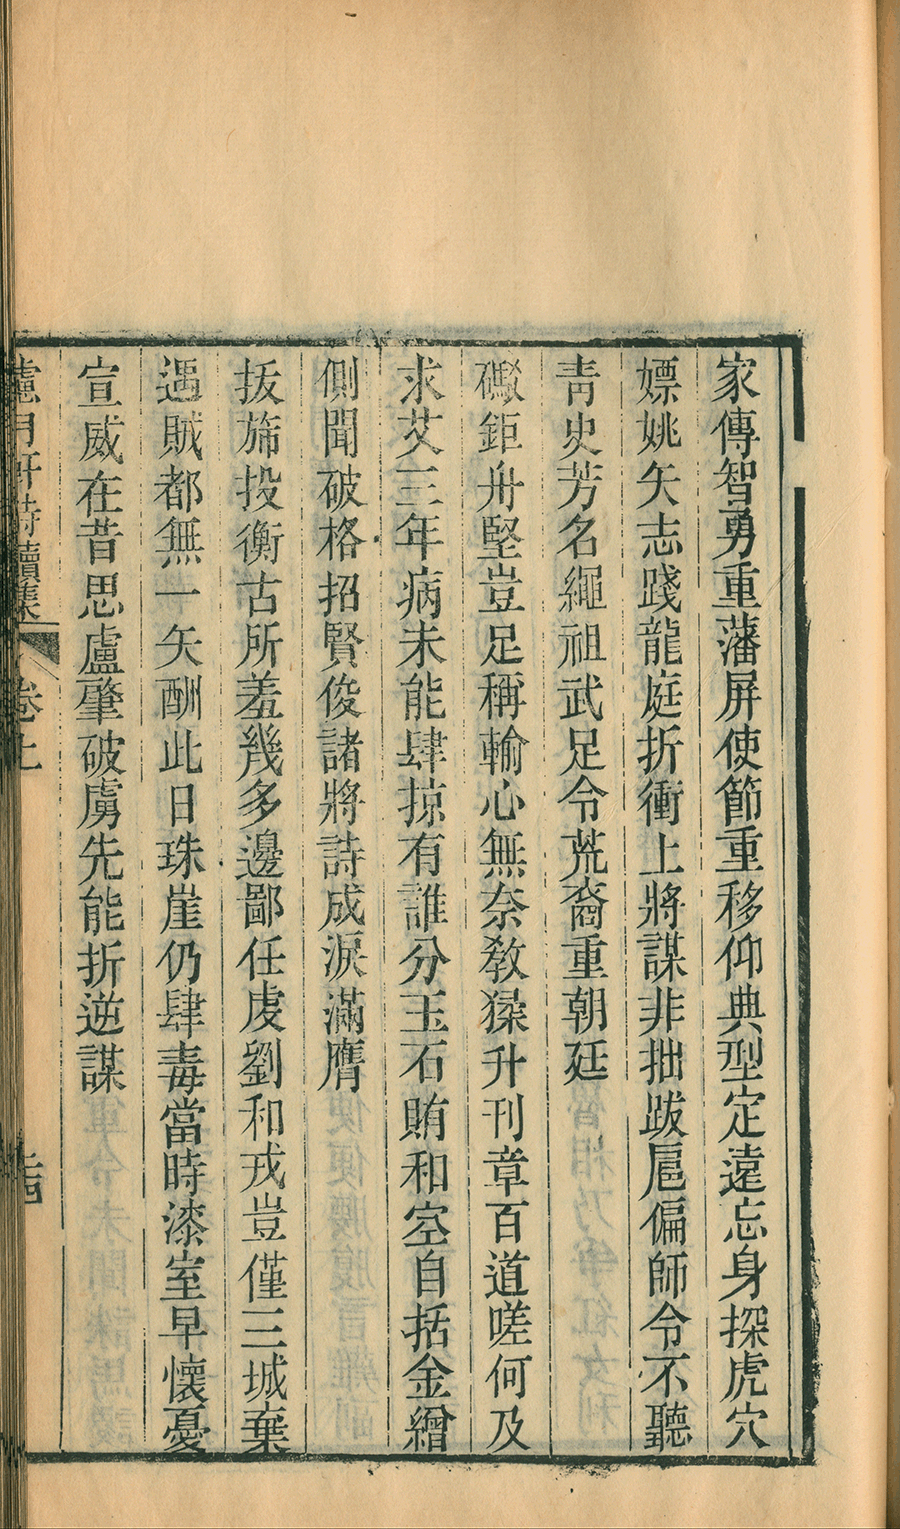 家傳智勇重藩屏使節重移仰典型定遠忘身探虎穴
嫖姚矢志踐龍庭折衝上將謀非拙跋扈偏師令不聽
青史芳名繩祖武足令荒裔重朝廷
礮鉅舟堅豈足稱輸心無奈敎猱升刊章百道嗟何及
求艾三年病未能肆掠有誰分玉石賄和空自括金繒
側聞破格招賢俊諸將詩成淚滿膺
拔旆投衡古所羞幾多邊鄙任虔劉和戎豈僅三城棄
遇賊都無一矢酬此日珠崖仍肆毒當時漆室早懷憂
宣威在昔思盧肇破虜先能折逆謀
月軒詩續集
卷上